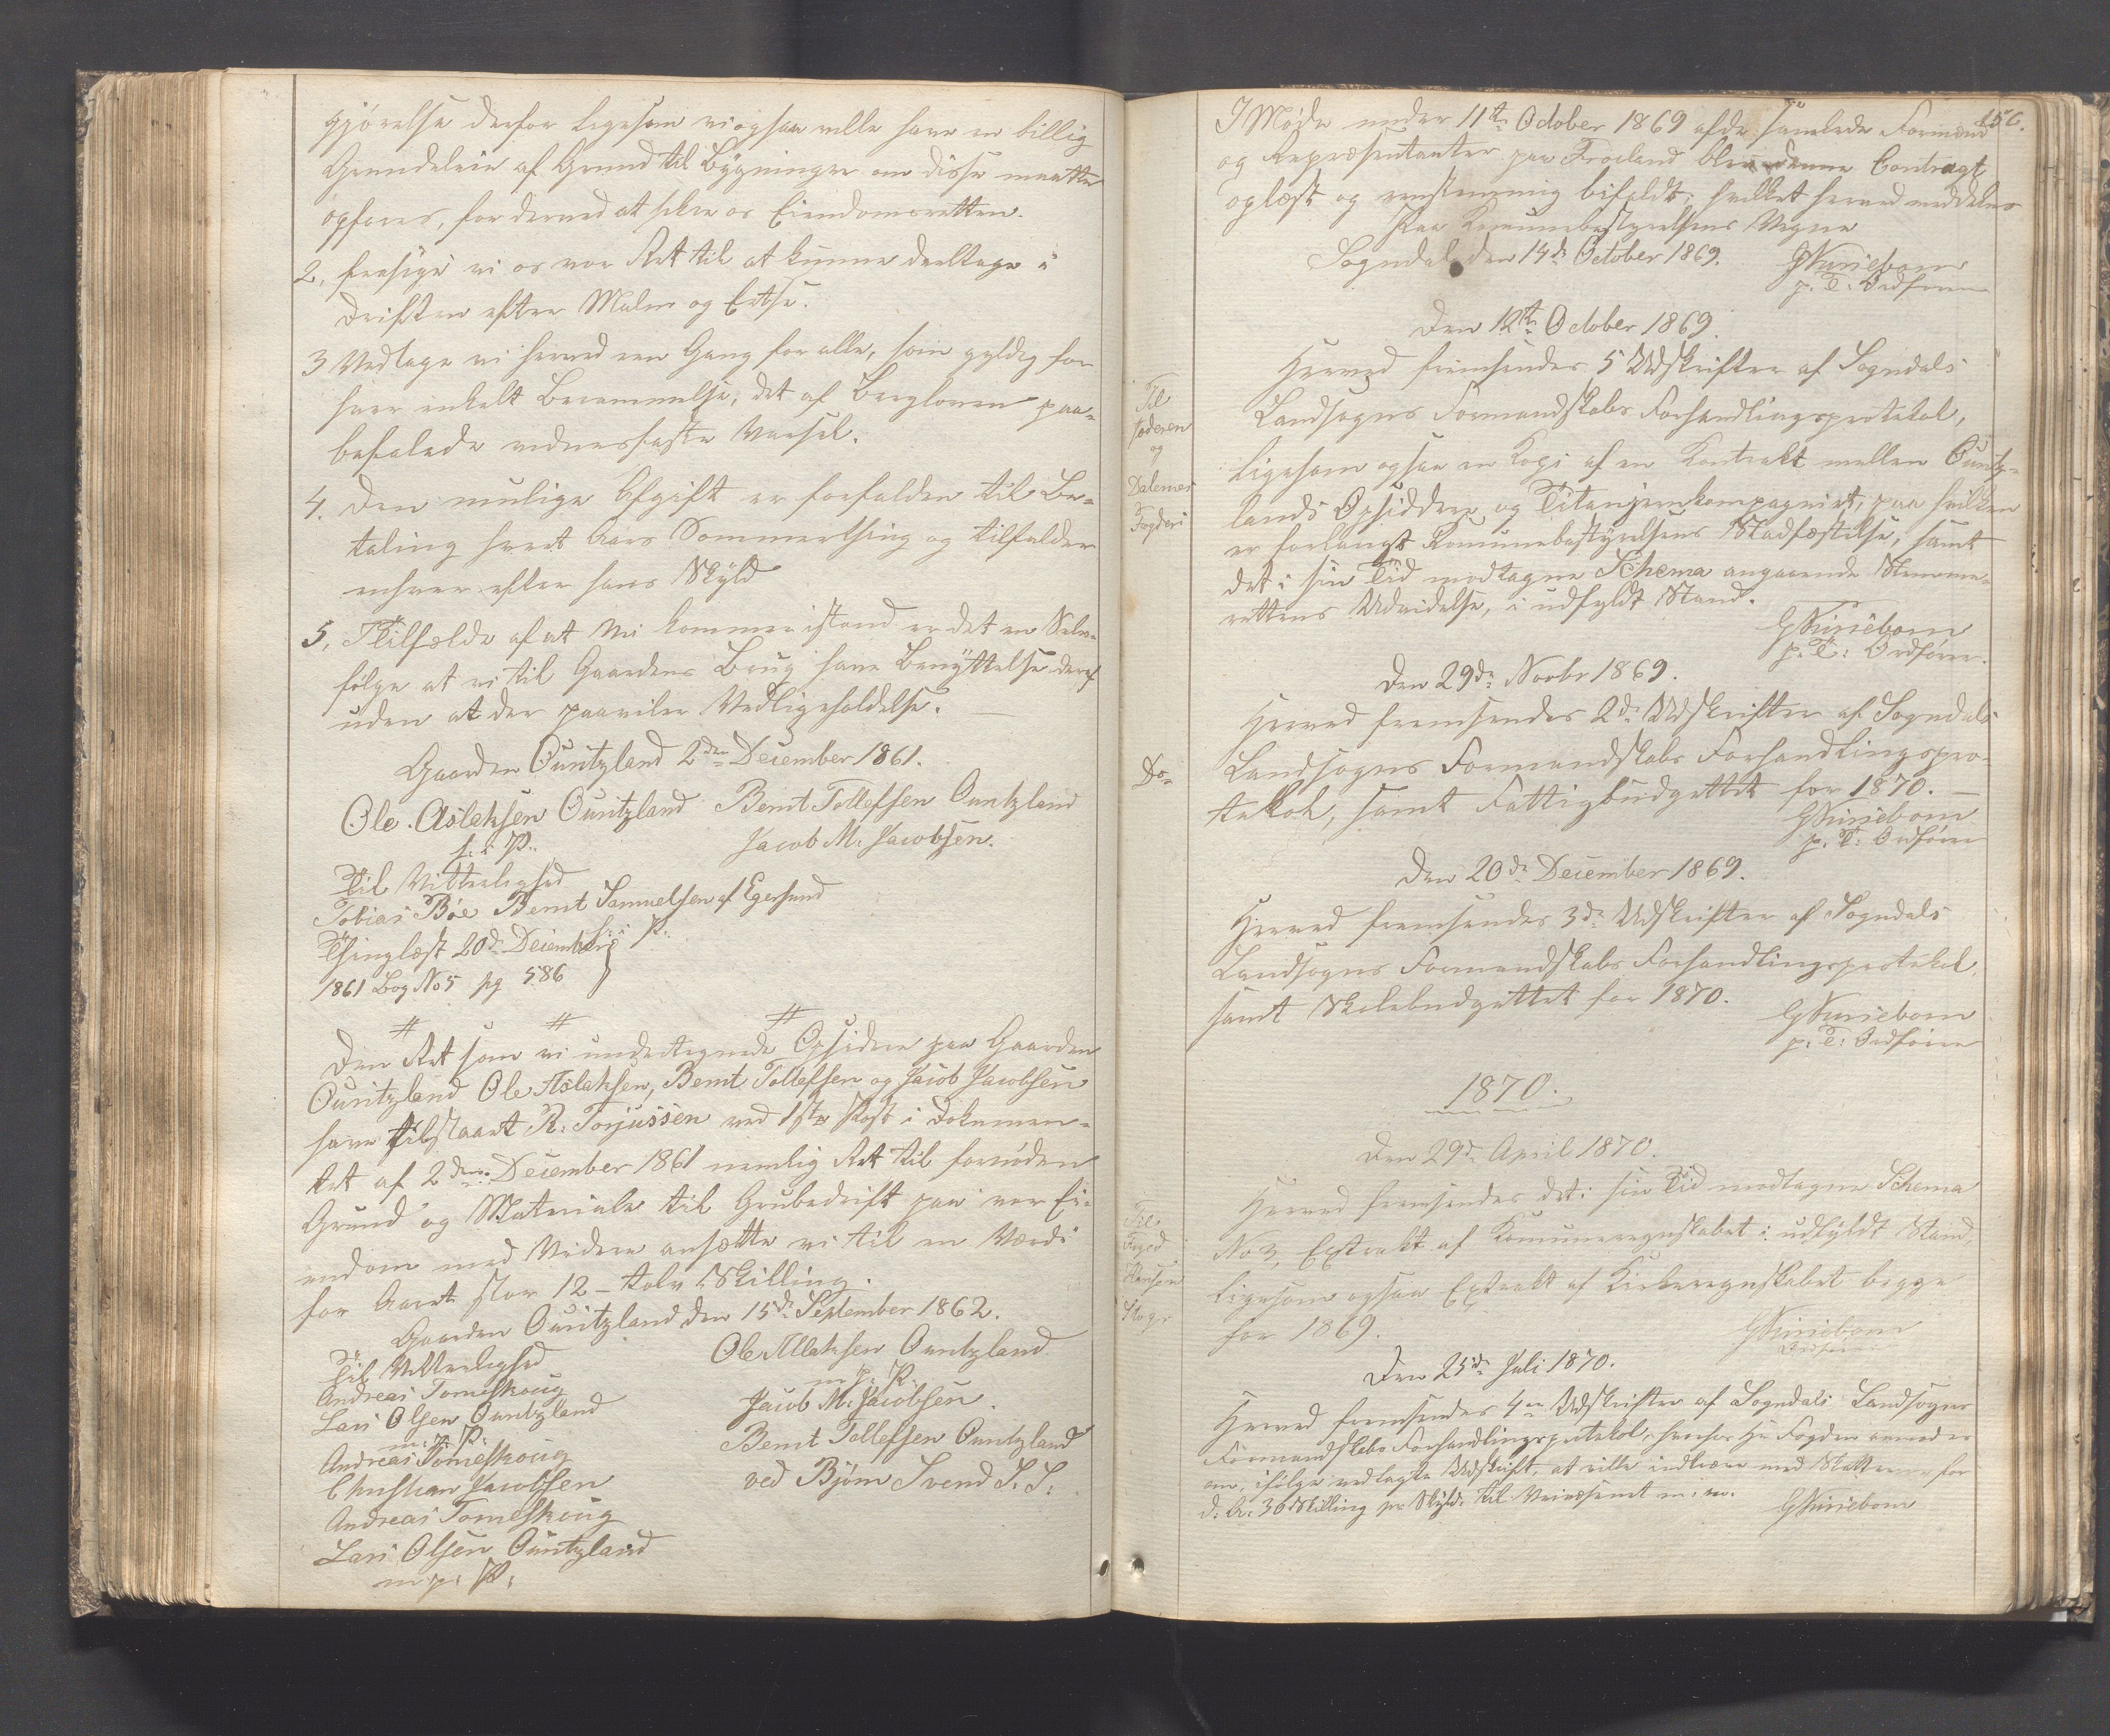 gjørelse derfor ligesom vi ogsaa ville have en billig
Grundeleie af Grund til Bygninger om disse maatte
opføres, for derved at sikre os Eiendomsretten.
2, frasige vi os vor Ret til at kunne deeltage i
Driften efter Malm og Ertse.
3 Vedtage vi herved een Gang for alle, som gyldig for
hver enkelt Berammelse, det af Bergloven paa-
befalede vidnesfaste Varsel.
4. Den mulige Afgift er forfalden til Be-
taling hvert Aars Sommerthing og tilfalder
enhver efter hans Skyld
5, I Tilfælde af at Vei kommer istand er det en Selv-
følge at vi til Gaardens Brug have Benyttelse deraf
uden at der paaviler Vedligeholdelse.
Gaarden Ouritzland 2den December 1861.
Ole Aslaksen Ouritzland Bernt Tollefsen Ouritzland
Jacob M. Jacobsen.
Til Vitterlighed
Tobias Bøe Bernt Samuelsen af Egersund
Thinglæst 20de December
1861 Bog No 5 pg 586
Den Ret som vi undertegnede Opsidere paa Gaarden
Ouritzland Ole Aslaksen, Bernt Tollefsen og Jacob Jacobsen
have tilstaaet R. Torjussen ved 1ste Post i Dokumen-
tet af 2den December 1861 nemlig Ret til fornøden
Grund og Materiale til Grubedrift paa vor Ei-
endom med Videre ansætte vi til en Værdi
for Aaret stor 12 – tolv Skilling.
Gaarden Ouritzland den 15de September 1862.
Til Vitterlighed Ole Allaksen Ouritzland
m. p. P.
Andreas Tomeskoug Jacob M. Jacobsen.
Lars Olsen Ouritzland
m. p. P. Bernt Tollefsen Ouritzland
Andreas Tomeskoug
Christian Jacobsen ved Bjørn Svend S. S.
Andreas Tomeskoug
Lars Olsen Ouritzland
m. p. P.
I Møde under 11te October 1869 af de samlede Formænd
og Repræsentanter paa Frøiland blev denne Contragt
oplæst og eenstemmig bifaldt, hvilket herved meddeles
Paa Komunebestyrelsens Vegne
Sogndal den 14de October 1869.
p. T. Ordfører
Den 12te October 1869.
Til
Jæderen
og
Dalernes
Fogderi
Herved fremsendes 5 Udskrifter af Sogndals
Landsogns Formandskabs Forhandlingsprotokol,
ligesom ogsaa en Kopi af en Kontrakt mellem Ouritz-
lands Opsiddere og Titanjernkompagniet, paa hvilken
er forlangt Komunebestyrelsens Stadfæstelse, samt
det i sin Tid modtagne Schema angaaende Stemme-
rettens Udvidelse, i udfyldt Stand.
p. T. Ordfører.
Den 29de Novbr 1869.
Do-
Herved fremsendes 2de Udskrifter af Sogndals
Landsogns Formandskabs Forhandlingspro-
tokol, samt Fattigbudgettet for 1870. —
p. T. Ordfører
Den 20de December 1869.
Herved fremsendes 3de Udskrifter af Sogndals
Landsogns Formandskabs Forhandlingsprotokol,
samt Skolebudgettet for 1870.
p. T. Ordfører
1870.
Den 29de April 1870.
Til
Foged
Hansen
Herved fremsendes det i sin Tid modtagne Schema
No 3, Extrakt af Komuneregnskabet i udfyldt Stand,
ligesom ogsaa Extrakt af Kirkeregnskabet begge
for 1869.
Ordfører
Den 25de Juli 1870.
Herved fremsendes 4re Udskrifter af Sogndals Landsogns
Formandskabs Forhandlingsprotokol, hvorhos Hr Fogden anmodes
om, ifølge vedlagte Udskrift, at ville indkræve med Skatterne for
d. A. 36 Skilling pr Skyld: til Veivæsenet m. m.